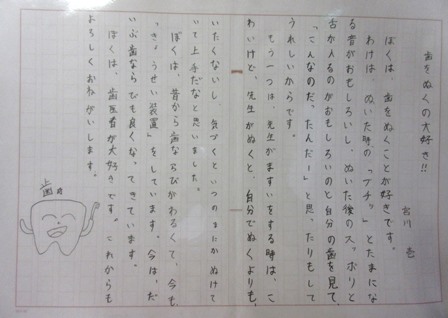 歯をぬくの大好き!!
ぼくは、歯をぬくことが好きです。
わけは、ぬいた時の「プチッ」とたまにな
る音がおもしろいし、ぬいた後のスッポリと
舌が入るのがおもしろいのと自分の歯を見て、
「こんなのだ、たんだー」と思ったりもして
うれしいからです。
もう一つは、先生がますいをする時は、こ
わいけど、先生がぬくと、自分でぬくよりも、
いたくないし、気づくといつのまにかぬけて
いて上手だなと思いました。
ぼくは、昔から歯ならびがわるくて、今も
「きょうせい装置」をしています。今は、だ
いぶ歯ならびも良くなってきています。
ぼくは、歯医者が大好きです。これからも
よろしくおねがいします。
歯